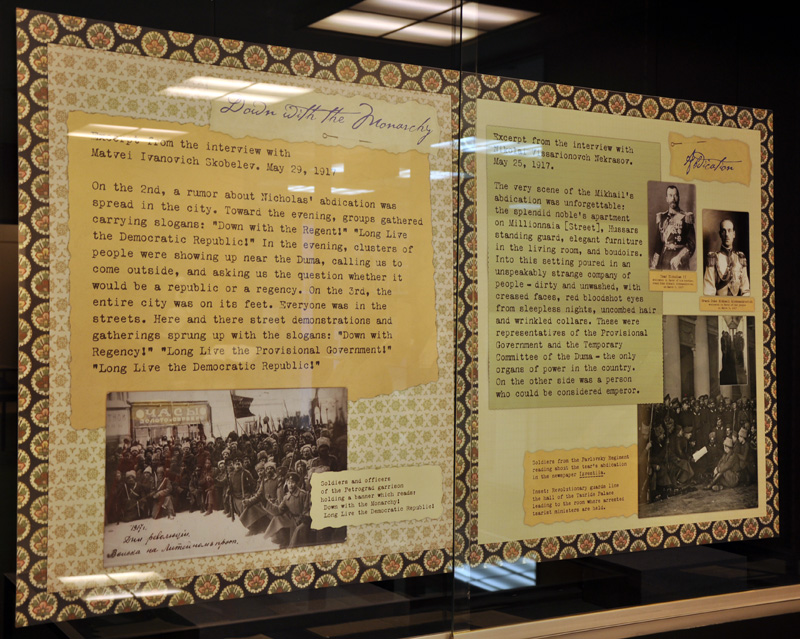 Down with the Monarchy
Excerpt from the interview with
Matvei Ivanovich Skobelev. May 29, 1917
On the 2nd, a rumor about Nicholas' abdication was
spread in the city. Toward the evening, groups gathered
carrying slogans: "Down with the Regent!" "Long Live
the Democratic Republic!" In the evening, clusters of
people were showing up near the Duma, calling us to
come outside, and asking us the question whether it
would be a republic or a regency. On the 3rd, the
entire city was on its feet. Everyone was in the
streets. Here and there street demonstrations and
gatherings sprung up with the slogans: "Down with
Regency!" "Long Live the Provisional Government!"
"Long Live the Democratic Republic!"
ЧАСЫ
1917г.
Дни революціи.
Войска на Литейномъ прот.
Soldiers and officers
of the Petrograd garrison
holding a banner which reads:
Down with the Monarchy!
Long Live the Democratic Republic!
Abdication
Excerpt from the interview with
Nikolai Vissarionovch Nekrasov.
May 25, 1917.
The very scene of the Mikhail's
abdication was unforgettable:
the splendid noble's apartment
on Millionnaia [Street], Hussars
standing guard, elegant furniture
in the living room, and boudoirs.
Into this setting poured in an
unspeakably strange company of
people – dirty and unwashed, with
creased faces, red bloodshot eyes
from sleepless nights, uncombed hair
and wrinkled collars. These were
representatives of the Provisional
Government and the Temporary
Committee of the Duma – the only
organs of power in the country.
On the other side was a person
who could be considered emperor.
Tsar Nicholas II
Soldiers from the Pavlovsky Regiment
reading about the tsar's abdication
in the newspaper Izvestiia.
Inset: Revolutionary guards line
the hall of the Tauride Palace
leading to the room where arrested
tsarist ministers are held.